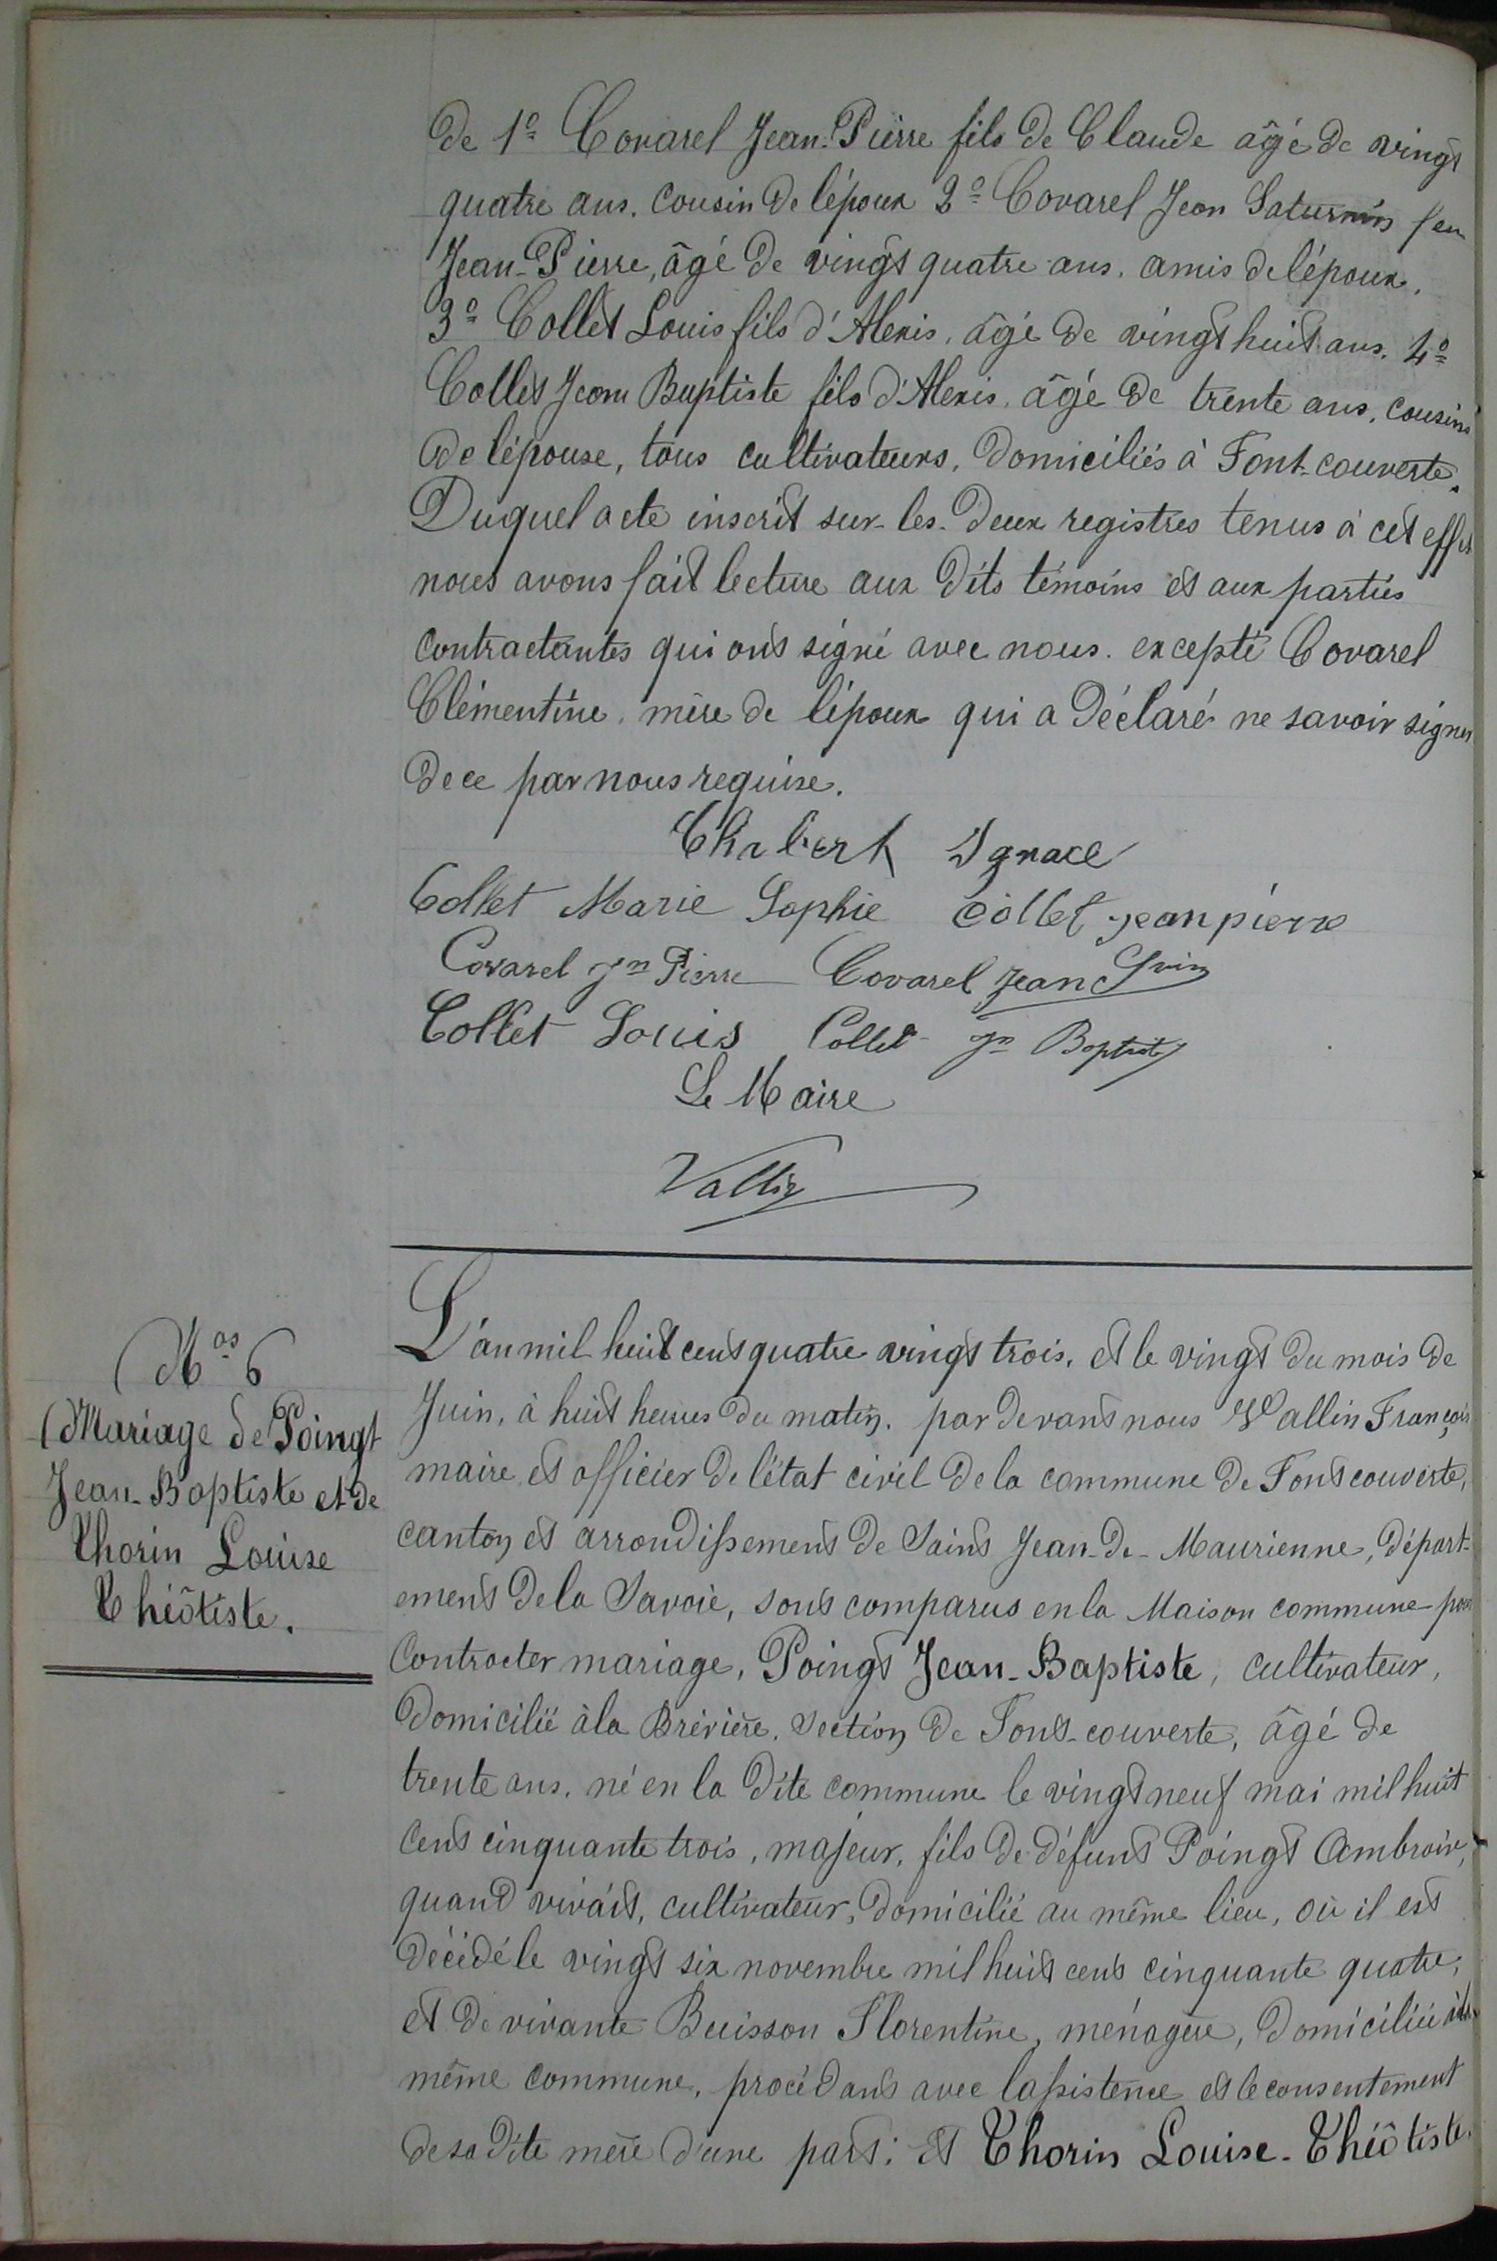 de 1º Covarel Jean-Pierre fils de Claude âgé de vingt
quatre ans. cousin de l'époux 2º Covarel Jean Saturnin feu
Jean-Pierre, âgé de vingt quatre ans. amis de l'époux.
3º Collet Louis fils d'Alexis. âgé de vingt huit ans. 4º
Collet Jean Baptiste fils d'Alexis. âgé de trente ans, cousins
de l'épouse, tous cultivateurs, domiciliés à Font-couverte.
Duquel acte inscrit sur les deux registres tenus à cet effet
nous avons fait lecture aux dits témoins et aux parties
contractantes qui ont signé avec nous. excepté Covarel
Clémentine. mère de l'époux qui a déclaré ne savoir signer
de ce par nous requise.
Chabert Ignace
Collet Marie Sophie Collet jean pierre
Covarel Jn Pierre Covarel Jean
Collet Louis Collet Jn Baptiste
Le Maire
Vallin
Nos 6
Mariage de Poingt
Jean-Baptiste et de
Thorin Louise
Théôtiste.
L'an mil huit cent quatre vingt trois. et le vingt du mois de
Juin, à huit heures du matin. par devant nous Vallin François
maire et officier de l'état civil de la commune de Fontcouverte,
canton et arrondissement de Saint Jean-de-Maurienne, départ-
ement de la Savoie, sont comparus en la Maison commune pour
contracter mariage, Poingt Jean-Baptiste, cultivateur,
domicilié à la Brévière. section de Font-couverte, âgé de
trente ans. né en la dite commune le vingt neuf mai mil huit
cent cinquante trois, majeur, fils de défunt Poingt Ambroise,
quand vivait, cultivateur, domicilié au même lieu, où il est
décédé le vingt six novembre mil huit cent cinquante quatre,
et de vivante Buisson Florentine, ménagère, domiciliée à la
même commune, procédant avec l'assistence et le consentement
de sa dite mère d'une part; et Thorin Louise-Théôtiste.